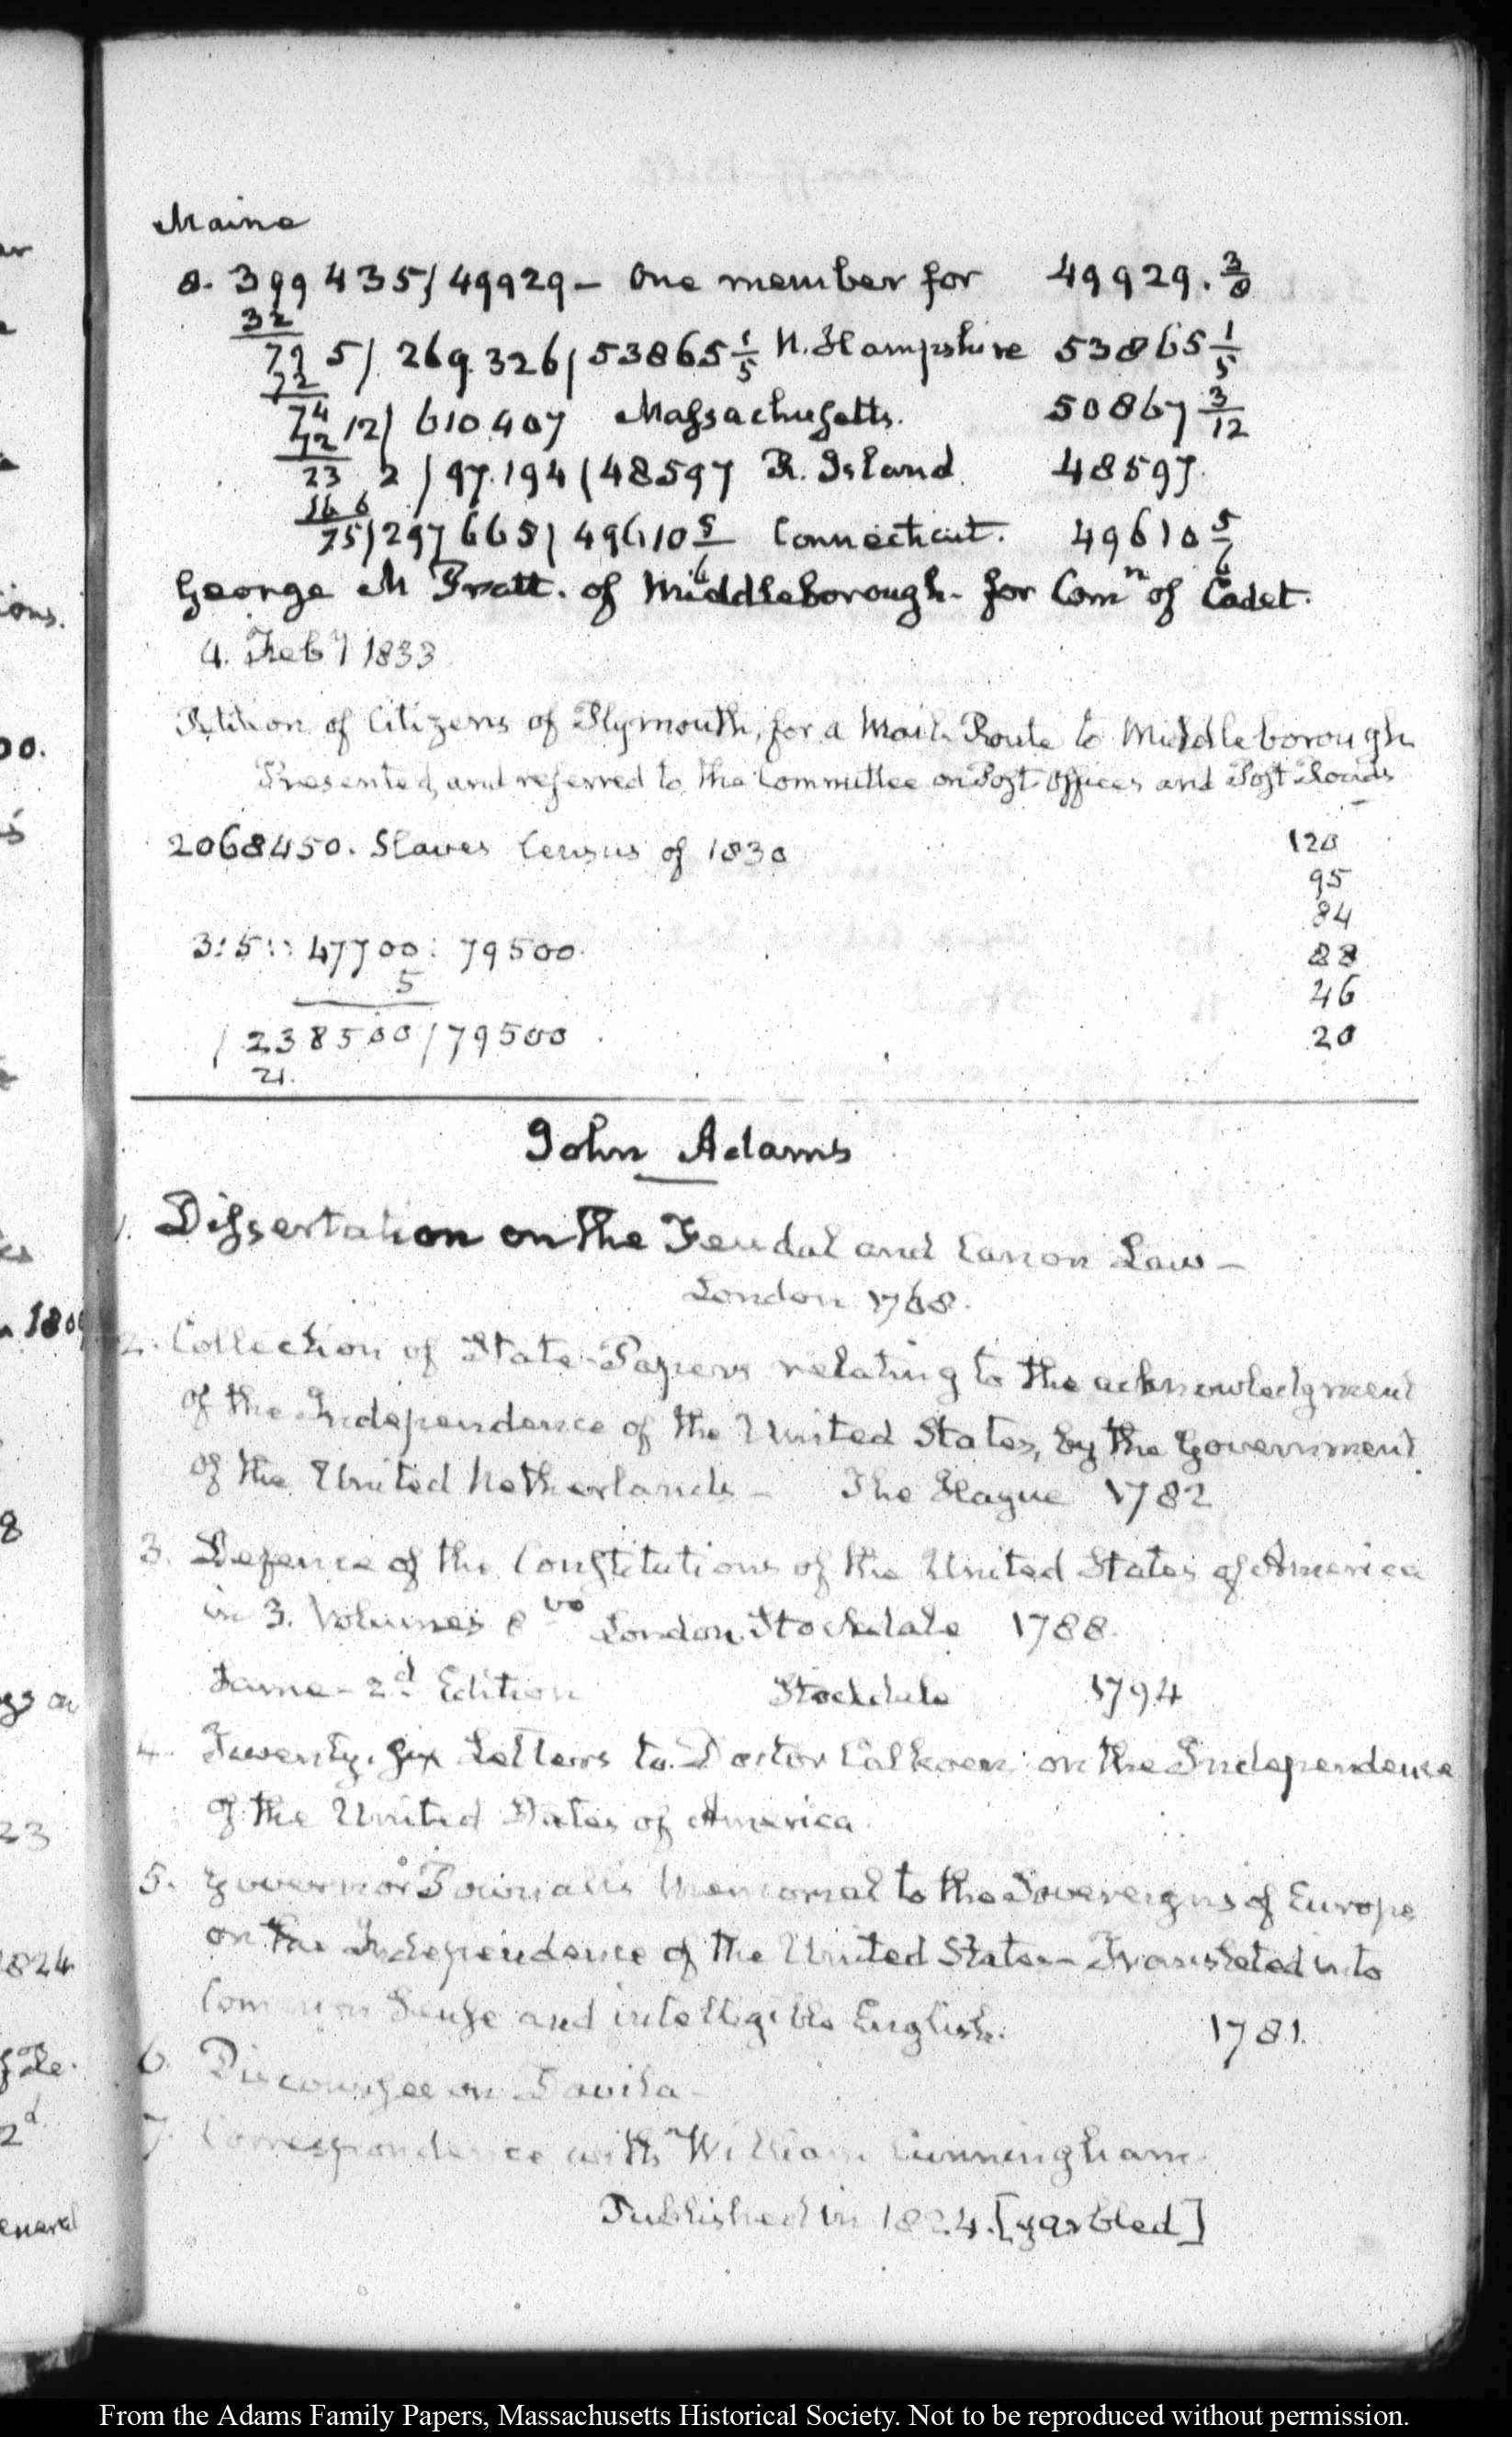 Maine
8. 399 435/ 49929 - One member for 49929. 3/8
32
79 5/. 269.326/ 53865 1/5 N. Hampshire 53865 1/5
72
74 12/ 610.407 Massachusetts. 50867 3/12
72
23 2 / 97.194 (48597 R. Island. 48597.
16 6
75/ 297 665/ 49610 5/6 Connecticut. 49610 5/6
George M Pratt. of Middleborough - for Comn of Cadet.
4. Feby 1833
Petition of Citizens of Plymouth, for a Mail Route to Middleborough
Presented, and referred to the Committee on Post Offices and Post Roads
2068450. Slaves Census of 1830
120
95
84
88
46
20
3:5:: 47700: 79500.
5
/ 238500 / 79500
21.
John Adams
1. Dissertation on the Feudal and Canon Law -
London 1768.
2. Collection of State-Papers relating to the acknowledgment
of the Independence of the United States, by the Government
of the United Netherlands - The Hague 1782
3. Defence of the Constitutions of the United States of America
in 3. Volumes 8vo London Stockdale 1788.
Same - 2d Edition Stockdale 1794
4. Twenty-six Letters to Doctor Calkoen on the Independence
of the United States of America.
5. Governor Pownall's Memorial to the Sovereigns of Europe
on the Independence of the United States - Translated into
Common Sense and intelligible English. 1781.
6. Discourses on Davila -
7. Correspondence with William Cunningham
Published in 1824. [garbled]
From the Adams Family Papers, Massachusetts Historical Society. Not to be reproduced without permission.